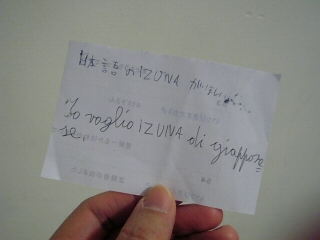 日本言語のIZUNAがほしい
Io voglio IZUNA di giappone
se